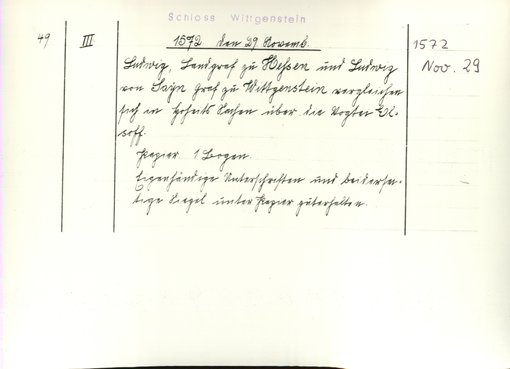 Schloss Wittgenstein
49 III 1572 den 29 Novemb. 1572
Nov. 29
Ludwig, Landgraf zu Hessen und Ludwig
von Sayn Graf zu Wittgenstein vergleichen
sich in Hoheits Sachen über die Vogtei El-
soff.
Papier 1 Bogen.
Eigenhändige Unterschriften und beidersei-
tige Siegel unter Papier guterhalten.